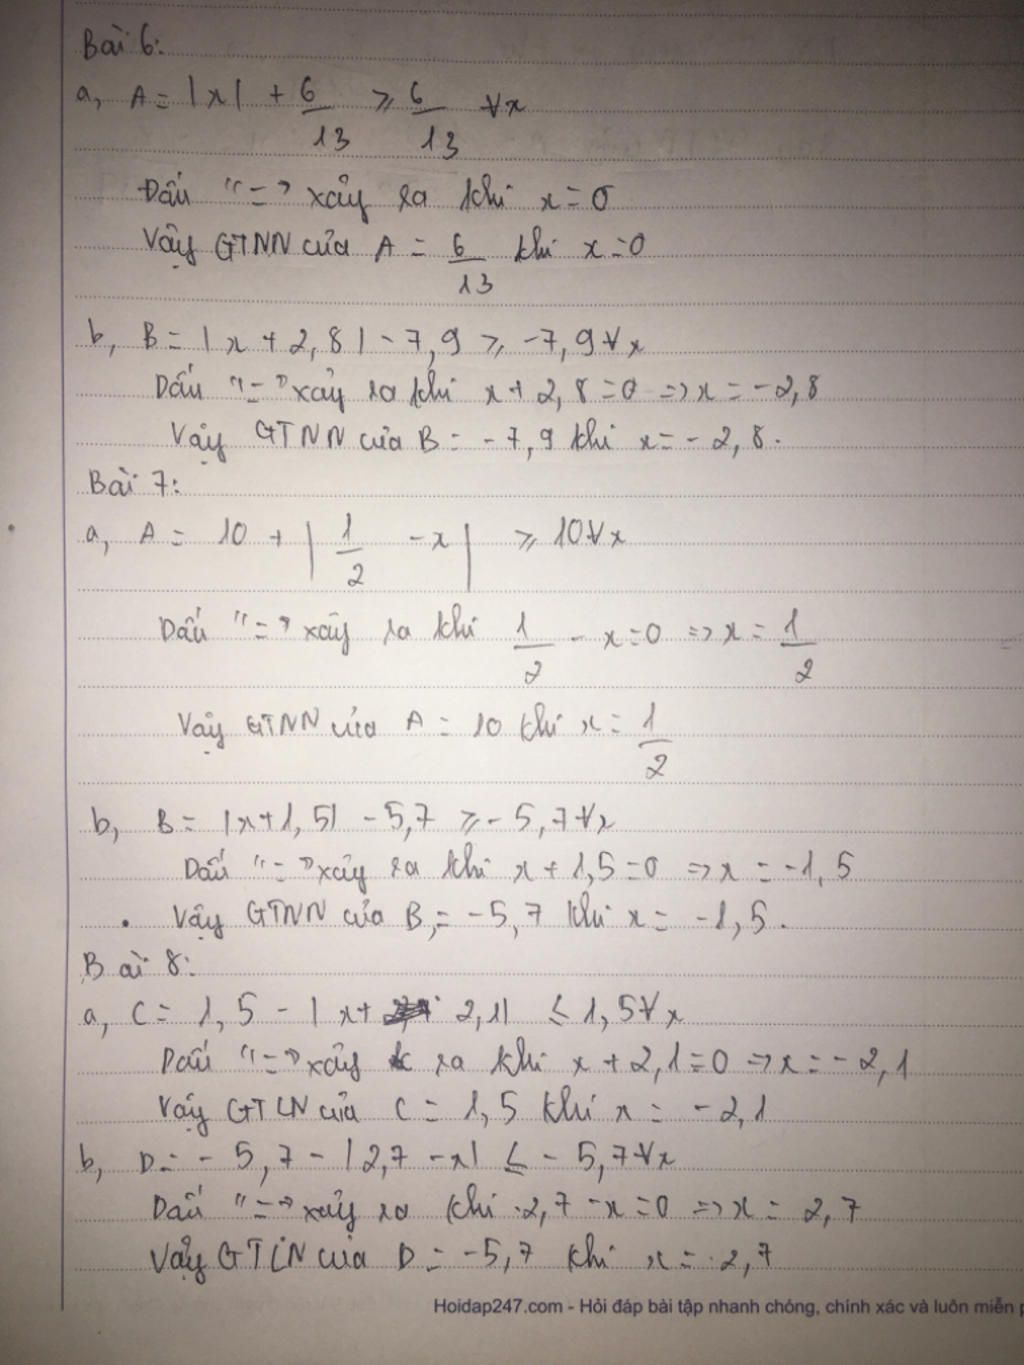 Bài 6:
a, A = |x| + 6/13 ≥ 6/13 ∀x
Dấu "=" xảy ra khi x = 0
Vậy GTNN của A = 6/13 khi x = 0
b, B = |x + 2,8| - 7,9 ≥ -7,9 ∀x
Dấu "=" xảy ra khi x + 2,8 = 0 => x = -2,8
Vậy GTNN của B = -7,9 khi x = -2,8.
Bài 7:
a, A = 10 + |1/2 - x| ≥ 10 ∀x
Dấu "=" xảy ra khi 1/2 - x = 0 => x = 1/2
Vậy GTNN của A = 10 khi x = 1/2
b, B = |x + 1,5| - 5,7 ≥ -5,7 ∀x
Dấu "=" xảy ra khi x + 1,5 = 0 => x = -1,5
Vậy GTNN của B = -5,7 khi x = -1,5.
Bài 8:
a, C = 1,5 - |x + 2,1| ≤ 1,5 ∀x
Dấu "=" xảy ra khi x + 2,1 = 0 => x = -2,1
Vậy GTLN của C = 1,5 khi x = -2,1
b, D = -5,7 - |2,7 - x| ≤ -5,7 ∀x
Dấu "=" xảy ra khi 2,7 - x = 0 => x = 2,7
Vậy GTLN của D = -5,7 khi x = 2,7
Hoidap247.com - Hỏi đáp bài tập nhanh chóng, chính xác và luôn miễn